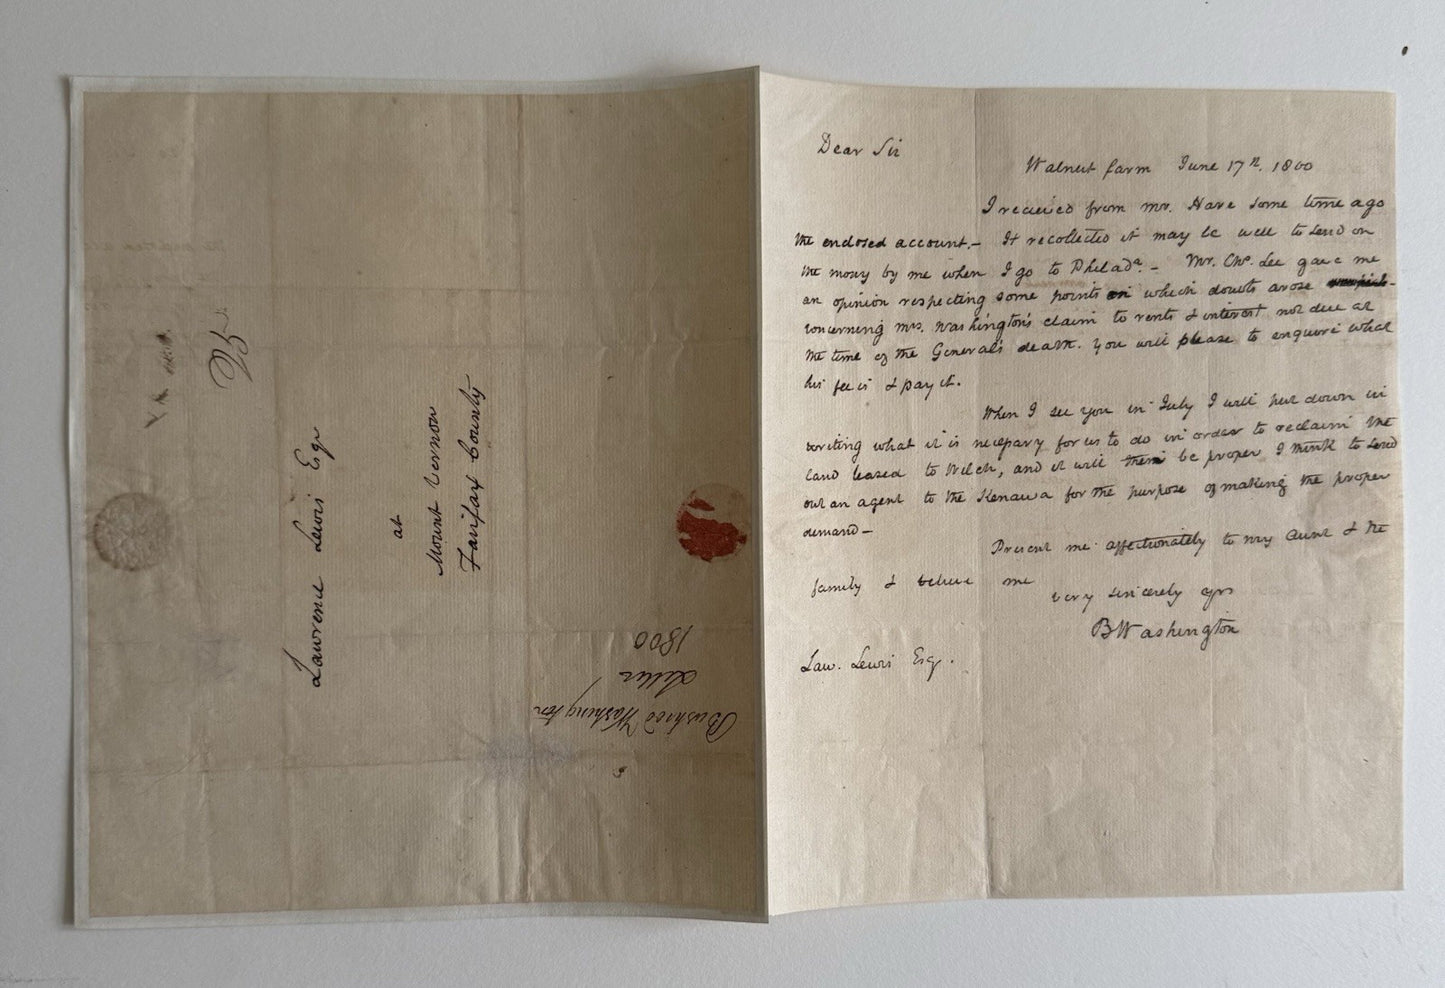 Lawrence Lewis Esqr
at
Mount Vernon
Fairfax County
25
Bushrod Washington
Letter
1800
Dear Sir
Walnut farm June 17th. 1800
I received from mr. Hare some time ago
the enclosed account.- If recollected it may be well to send on
the money by me when I go to Philada. - Mr. Chs. Lee gave me
an opinion respecting some points on which doubts arose
concerning mrs. Washington's claim to rents & interest not due at
the time of the General's death. You will please to enquire what
his fee is & pay it.
When I see you in July I will put down in
writing what it is necessary for us to do in order to reclaim the
land leased to Welch, and it will then be proper I think to send
out an agent to the Kenawa for the purpose of making the proper
demand -
Present me affectionately to my Aunt & the
family & believe me
very sincerely yrs
BWashington
Law. Lewis Esqr.